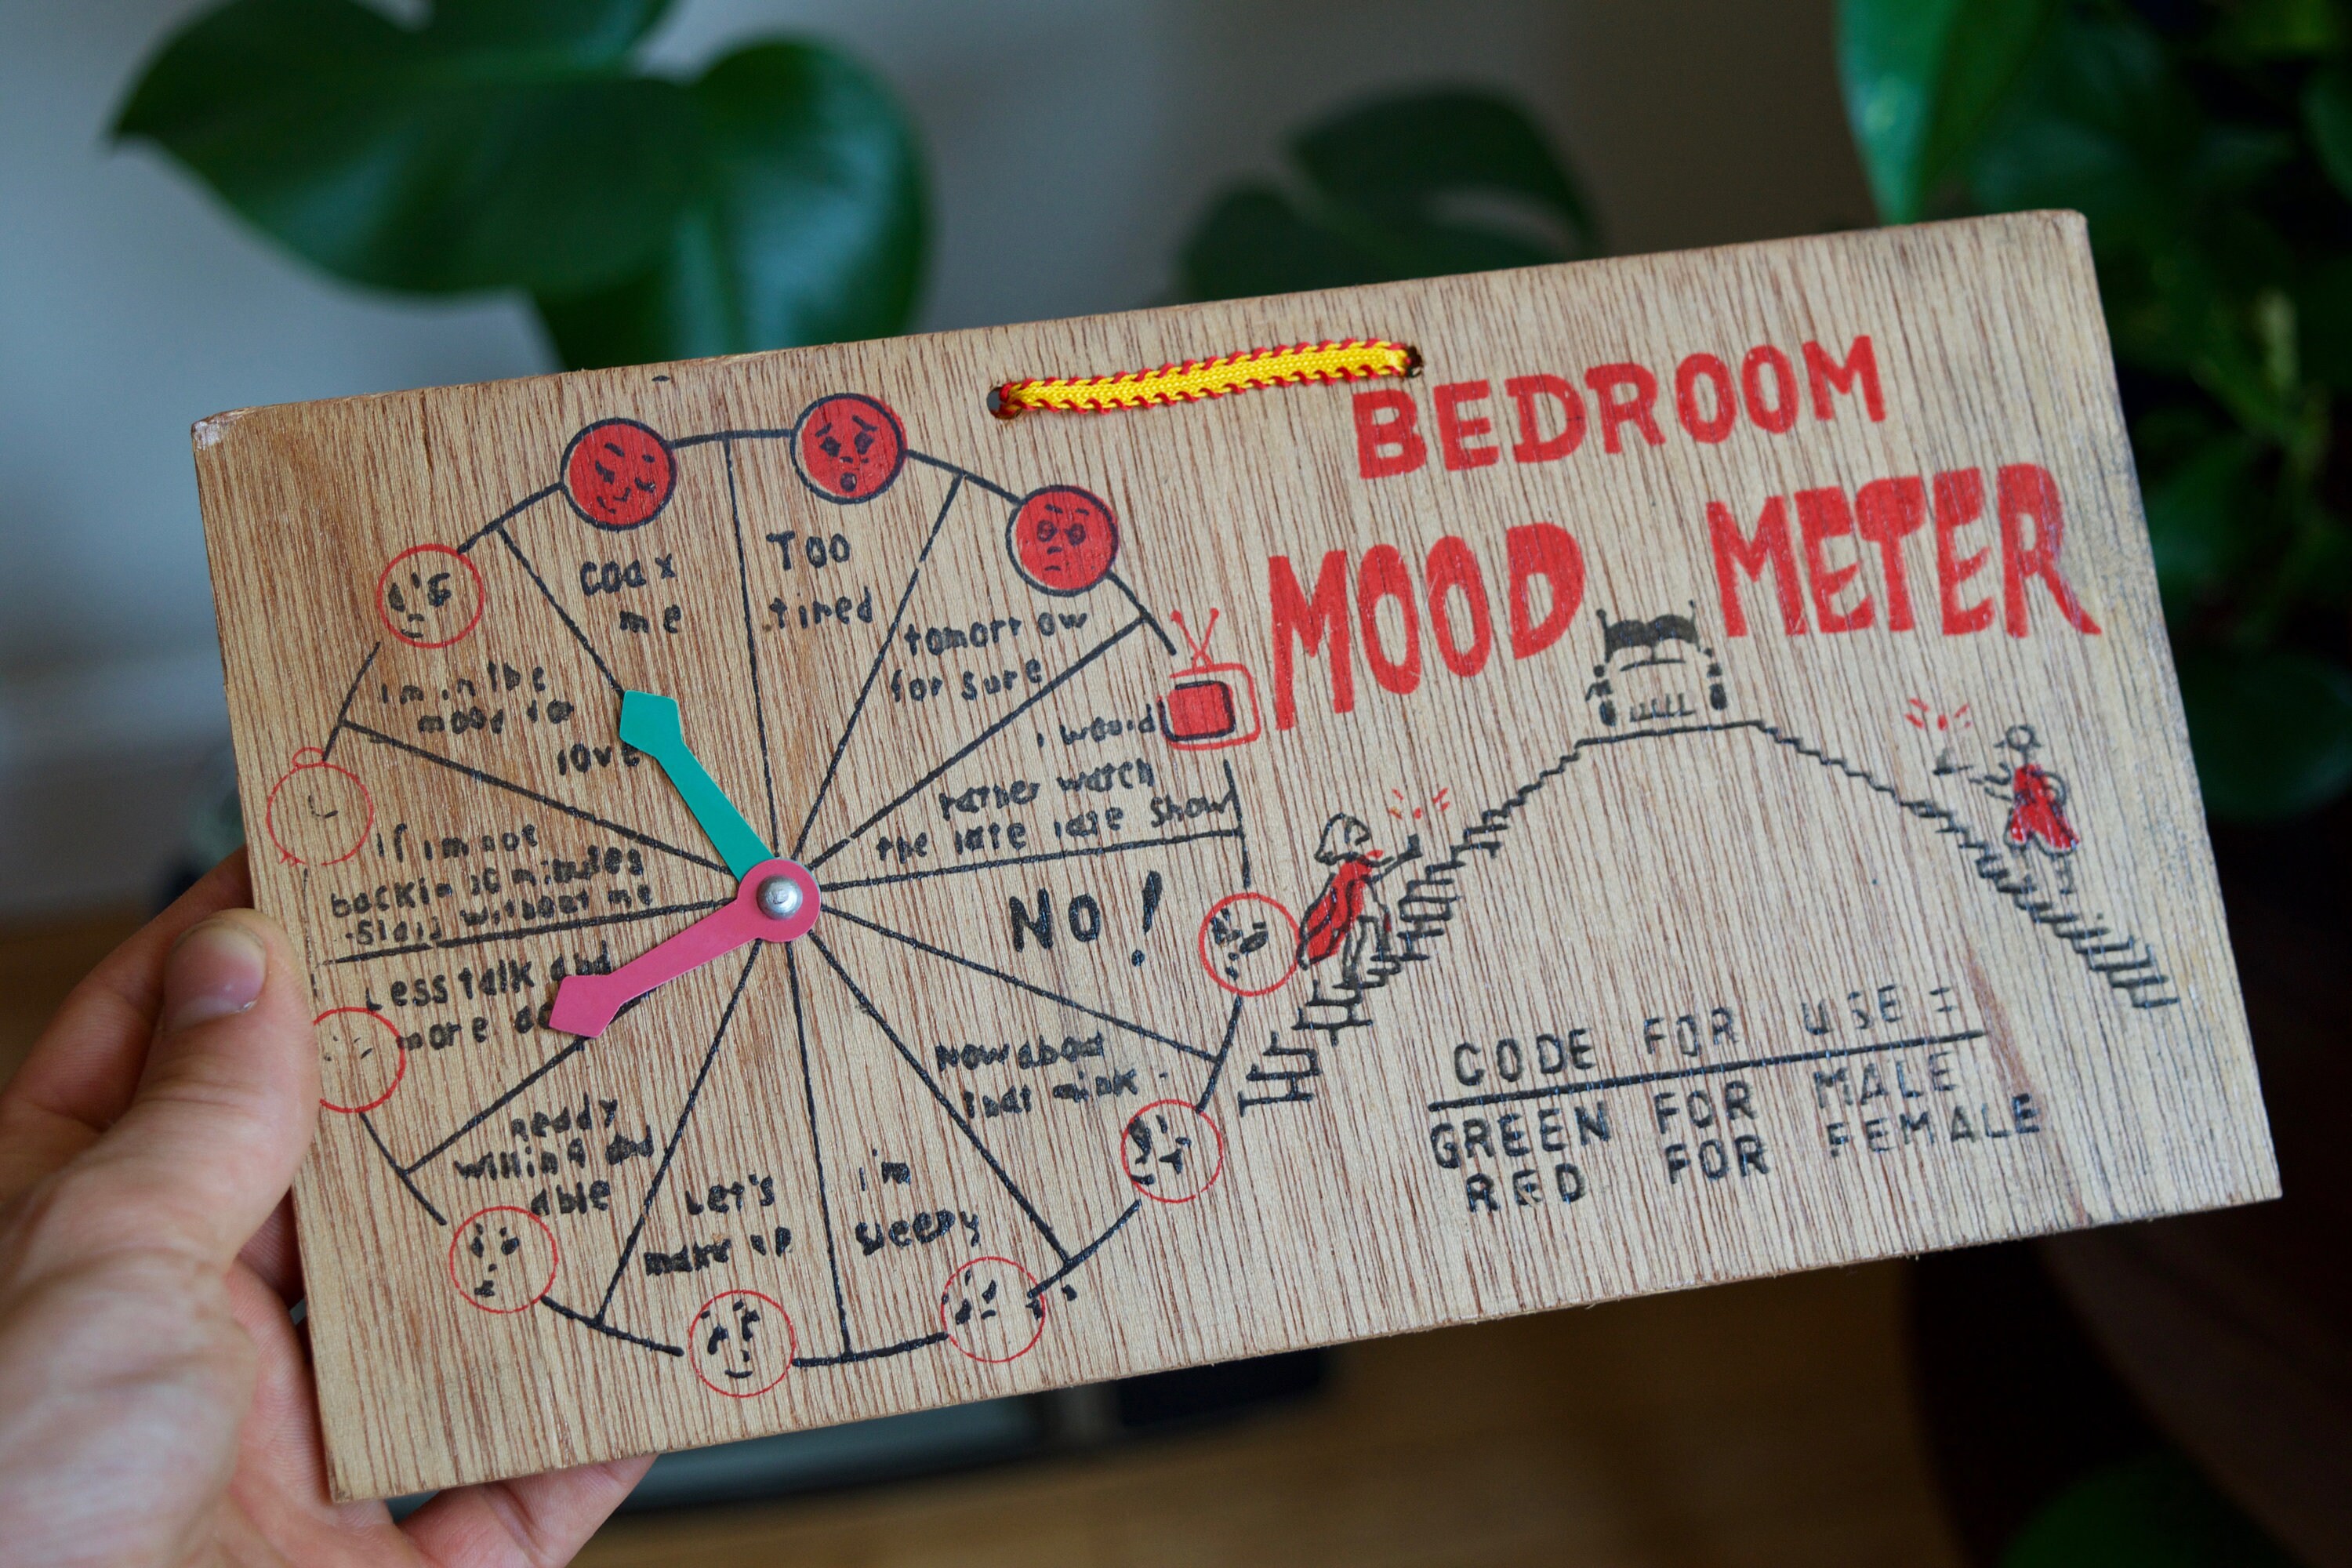 BEDROOM
MOOD METER
coax
me
Too
tired
tomorrow
for sure
I would
rather watch
the late late show
NO!
Now about
that mink
I'm
sleepy
Let's
make up
Ready
willing and
able
Less talk and
more
If I'm not
back in 10 minutes
-Start without me
I'm in the
mood for
love
CODE FOR USE:
GREEN FOR MALE
RED FOR FEMALE